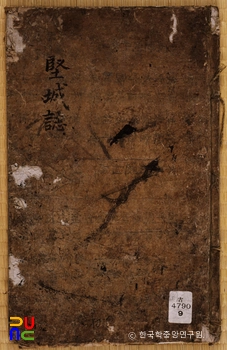 堅城誌
古
4790
9
© 한국학중앙연구원